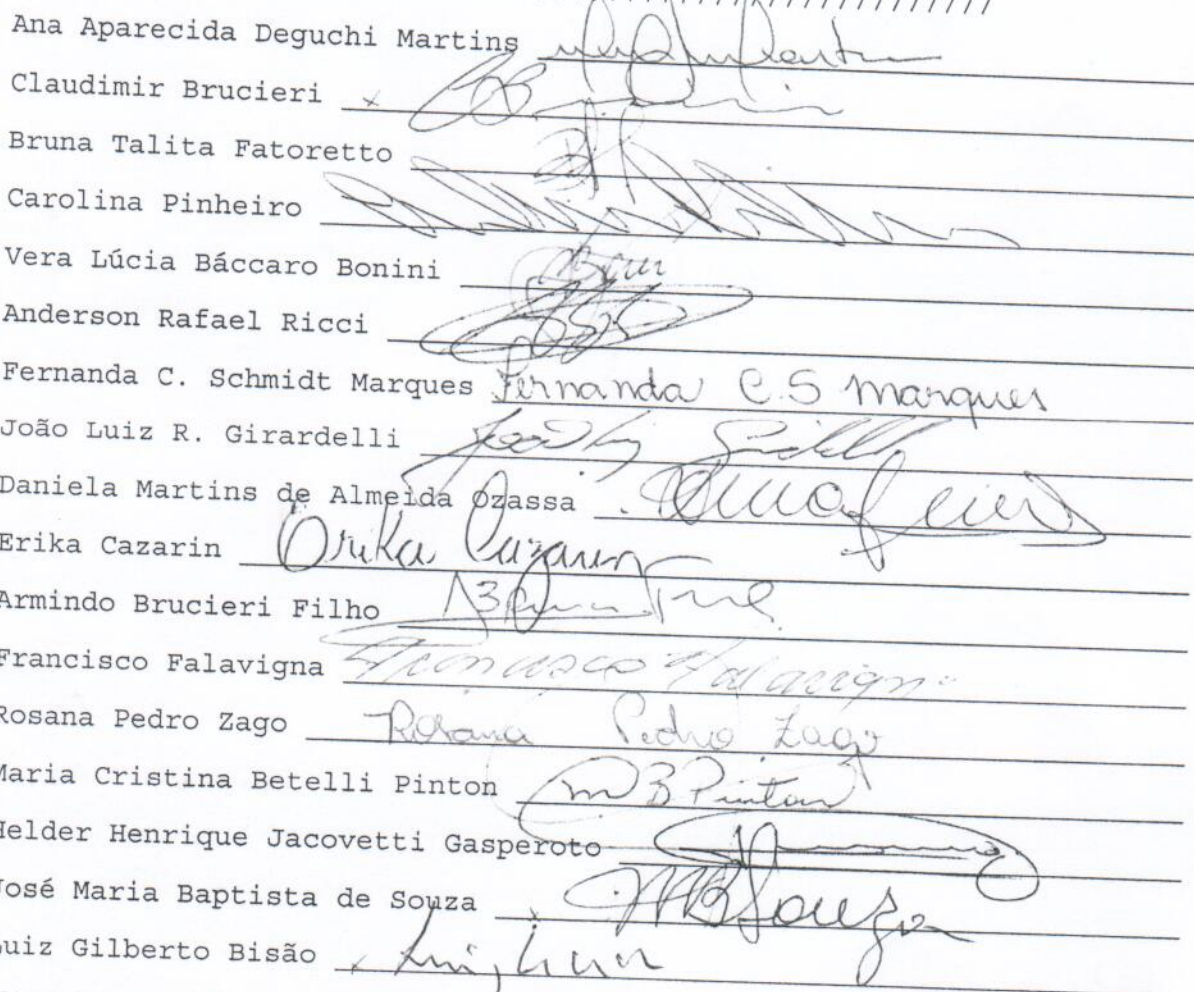 Ana Aparecida Deguchi Martins
Claudimir Brucieri
Bruna Talita Fatoretto
Carolina Pinheiro
Vera Lúcia Báccaro Bonini
Anderson Rafael Ricci
Fernanda C. Schmidt Marques Fernanda C.S Marques
João Luiz R. Girardelli
Daniela Martins de Almeida Ozassa
Erika Cazarin Erika Cazarin
Armindo Brucieri Filho
Francisco Falavigna Francisco Falavigna
Rosana Pedro Zago Rosana Pedro Zago
Maria Cristina Betelli Pinton M B Pinton
Helder Henrique Jacovetti Gasperoto
José Maria Baptista de Souza JMBSouza
Luiz Gilberto Bisão